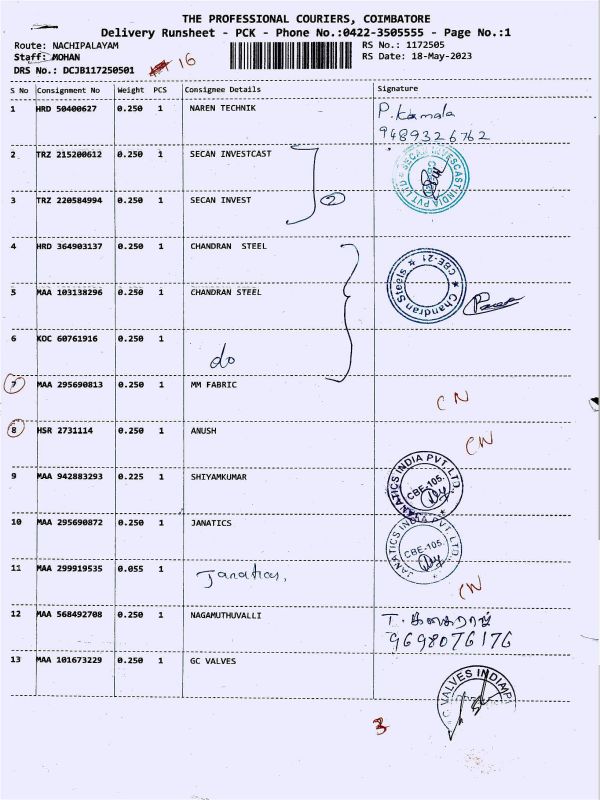 THE PROFESSIONAL COURIERS, COIMBATORE
Delivery Runsheet - PCK - Phone No.:0422-3505555 - Page No.:1
Route: NACHIPALAYAM RS No.: 1172505
Staff: MOHAN RS Date: 18-May-2023
DRS No.: DCJB117250501 16
S No Consignment No Weight PCS Consignee Details Signature
1 HRD 50400627 0.250 1 NAREN TECHNIK P. Kamala
9489326762
2 TRZ 215200612 0.250 1 SECAN INVESTCAST
SECAN INVESCAST INDIA PVT LTD
3 TRZ 220584994 0.250 1 SECAN INVEST 2
4 HRD 364903137 0.250 1 CHANDRAN STEEL
★ Chandran Steels ★ CBE-21
5 MAA 103138296 0.250 1 CHANDRAN STEEL
6 KOC 60761916 0.250 1
do
7 MAA 295690813 0.250 1 MM FABRIC CN
8 HSR 2731114 0.250 1 ANUSH CN
9 MAA 942883293 0.225 1 SHIYAMKUMAR
JANATICS INDIA PVT. LTD. CBE-105.
10 MAA 295690872 0.250 1 JANATICS
JANATICS INDIA PVT. LTD. CBE-105.
11 MAA 299919535 0.055 1 Janatics,
CN
12 MAA 568492708 0.250 1 NAGAMUTHUVALLI
9698076176
13 MAA 101673229 0.250 1 GC VALVES
VALVES INDIA
3